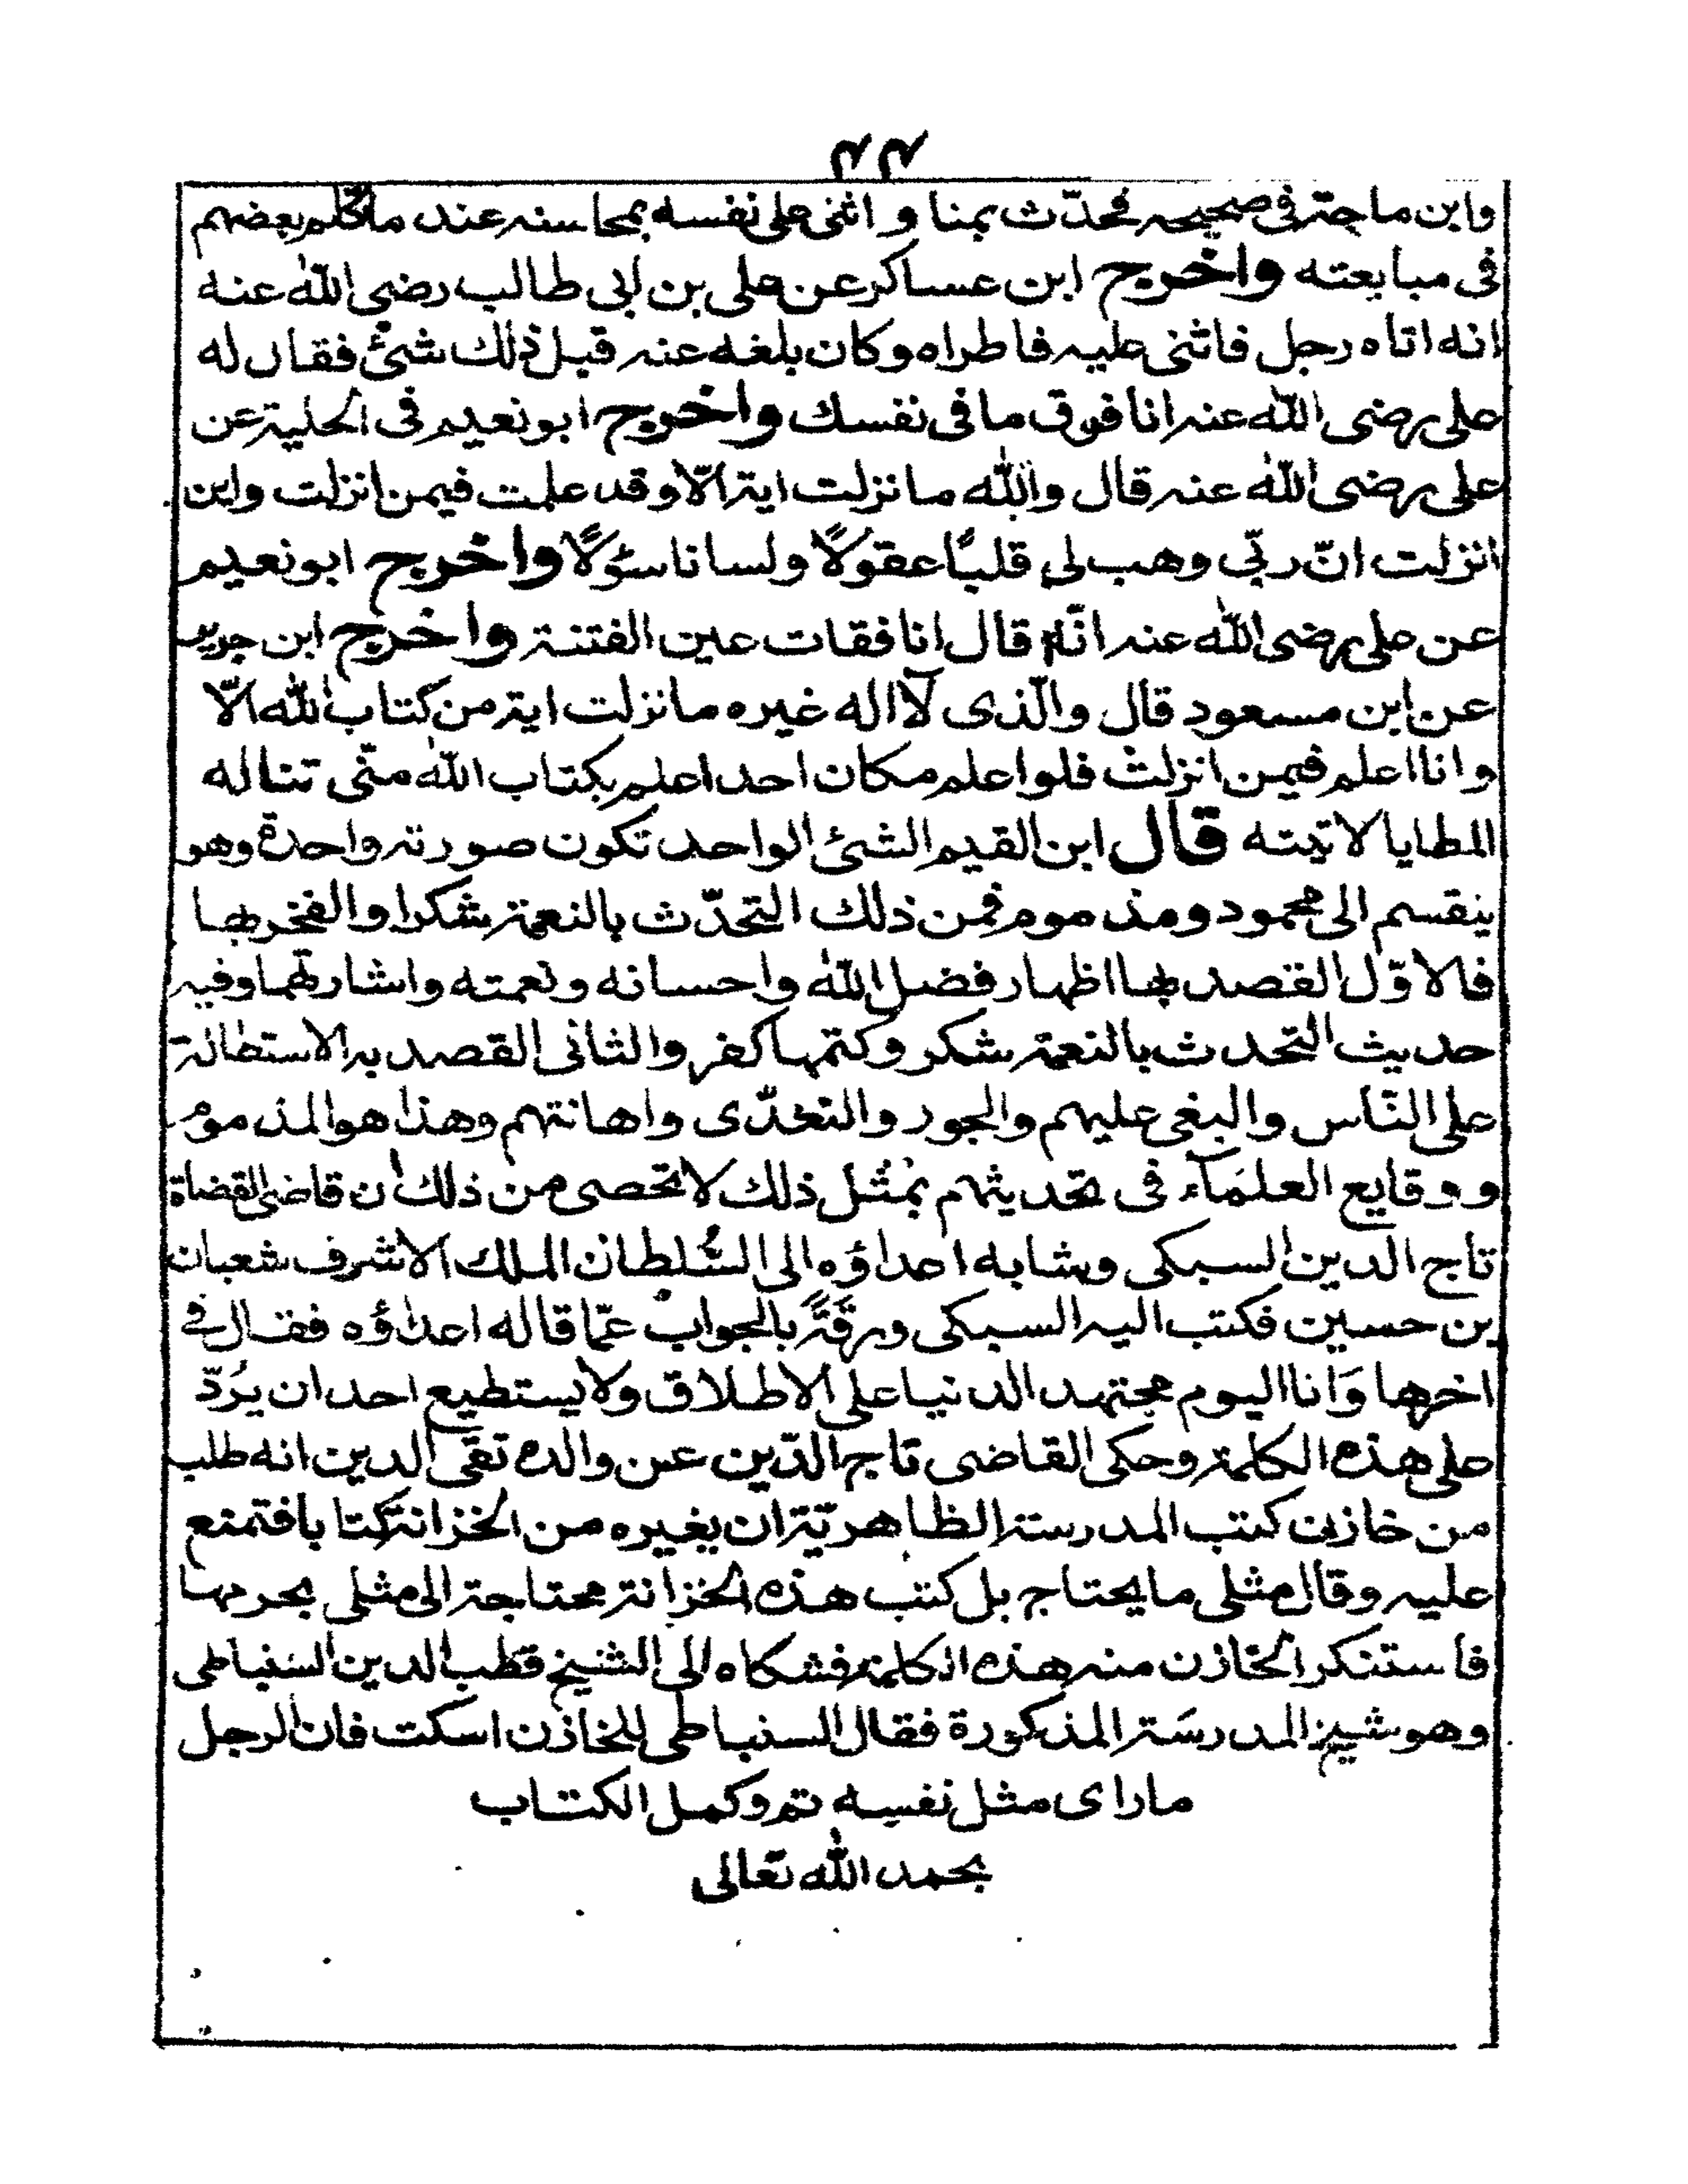 ٢٢
وابن ماجة في صحيحه فحدّث بمنا و اثنى على نفسه بمحاسنه عند ما تكلم بعضهم
فى مبايعته واخرج ابن عساكر عن على بن ابى طالب رضى الله عنه
انه اتاه رجل فاثنى عليه فاطراه وكان بلغه عنه قبل ذلك شئ فقال له
على رضى الله عنه انا فوق ما فى نفسك واخرج ابو نعيم فى الحلية عن
على رضى الله عنه قال والله ما نزلت اية الّا وقد علمت فيمن انزلت واين
انزلت انّ ربّى وهب لى قلبًا عقولًا ولسانا سئولًا واخرج ابو نعيم
عن على رضى الله عنه انّه قال انا فقات عين الفتنة واخرج ابن جرير
عن ابن مسعود قال والّذى لا اله غيره ما نزلت اية من كتاب الله الّا
وانا اعلم فيمن انزلت فلو اعلم مكان احد اعلم بكتاب الله منّى تناله
المطايا لاتيته قال ابن القيم الشئ الواحد تكون صورته واحدة وهو
ينقسم الى محمود ومذموم فمن ذلك التحدّث بالنعمة شكرا والفخر بها
فالاوّل القصد بها اظهار فضل الله واحسانه ونعمته واشارتهما وفيه
حديث التحدث بالنعمة شكر وكتمها كفر والثانى القصد به الاستطالة
على النّاس والبغى عليهم والجور والتعدّى واهانتهم وهذا هو المذموم
ووقايع العلمَآء فى تحديثهم بمثل ذلك لا تحصى من ذلك ان قاضى القضاة
تاج الدين السبكى وشا به اعداؤه الى السُّلطان الملك الاشرف شعبان
بن حسين فكتب اليه السبكى ورقَةً بالجواب عمّا قاله اعداؤه فقال فى
اخرها وَانا اليوم مجتهد الدنيا على الاطلاق ولا يستطيع احد ان يرُدّ
على هذه الكلمة وحكى القاضى تاج الدّين عن والده تقى الدين انه طلب
من خازن كتب المدرسة الظاهريّة ان يغيره من الخزانة كتابا فتمنع
عليه وقال مثلى ما يحتاج بل كتب هذه الخزانة محتاجة الى مثلى يحرمها
فاستنكر الخازن منه هذه الكلمة فشكاه الى الشيخ قطب الدين السنباطى
وهو شيخ المدرسَة المذكورة فقال السنباطى للخازن اسكت فان الرجل
ماراى مثل نفسه تم وكمل الكتاب
بحمد الله تعالى